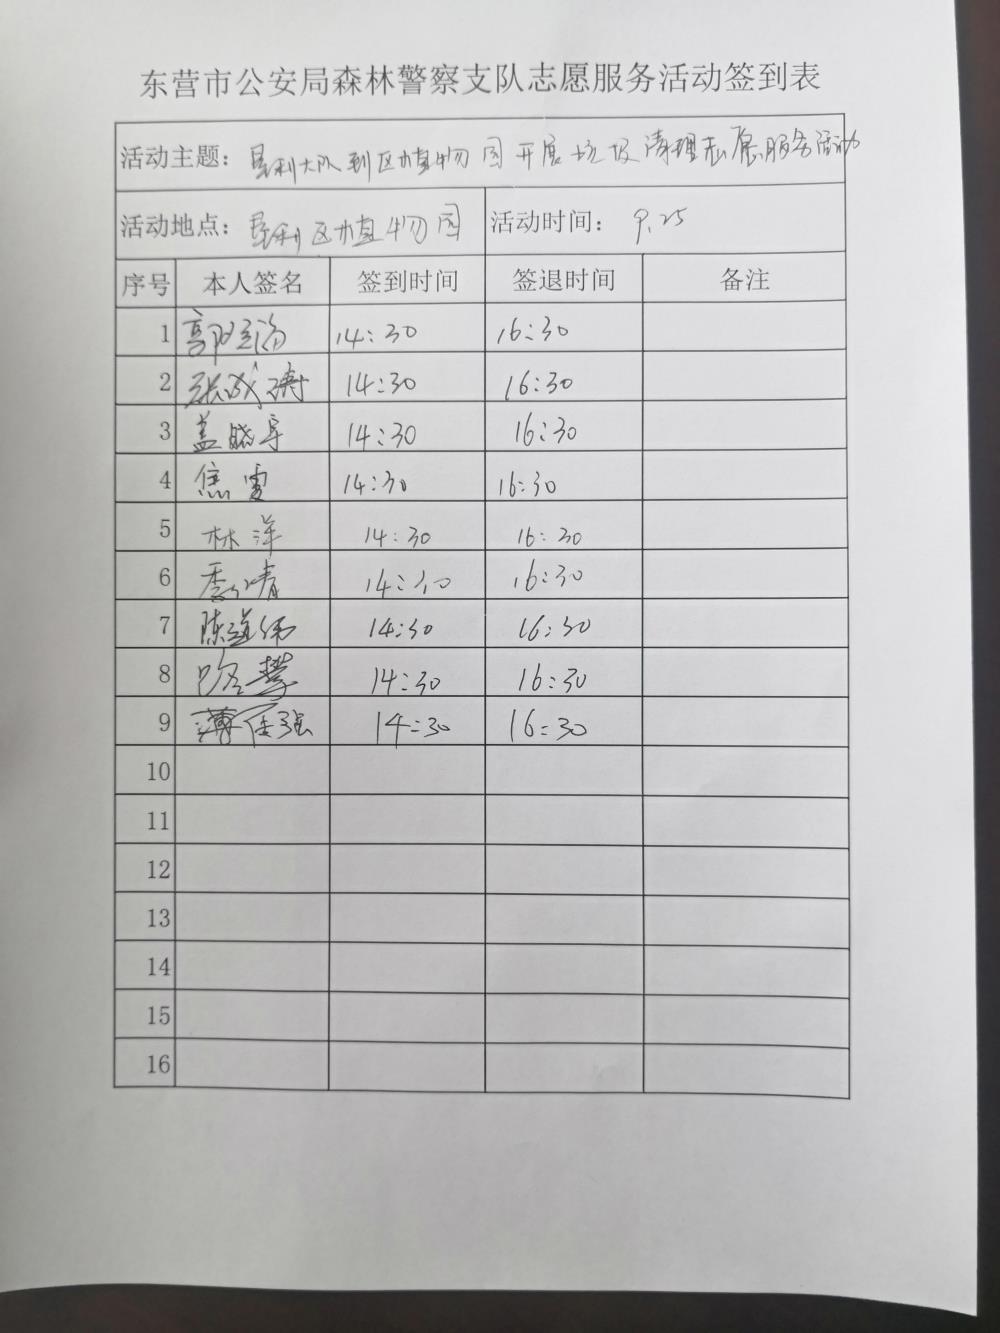 东营市公安局森林警察支队志愿服务活动签到表
活动主题：垦利大队到区植物园开展垃圾清理志愿服务活动
活动地点：垦利区植物园 活动时间：9.25
序号 本人签名 签到时间 签退时间 备注
1 14:30 16:30
2 张成涛 14:30 16:30
3 盖晓宇 14:30 16:30
4 焦雪 14:30 16:30
5 林洋 14:30 16:30
6 14:30 16:30
7 陈道伟 14:30 16:30
8 路慧 14:30 16:30
9 薄佳强 14:30 16:30
10
11
12
13
14
15
16